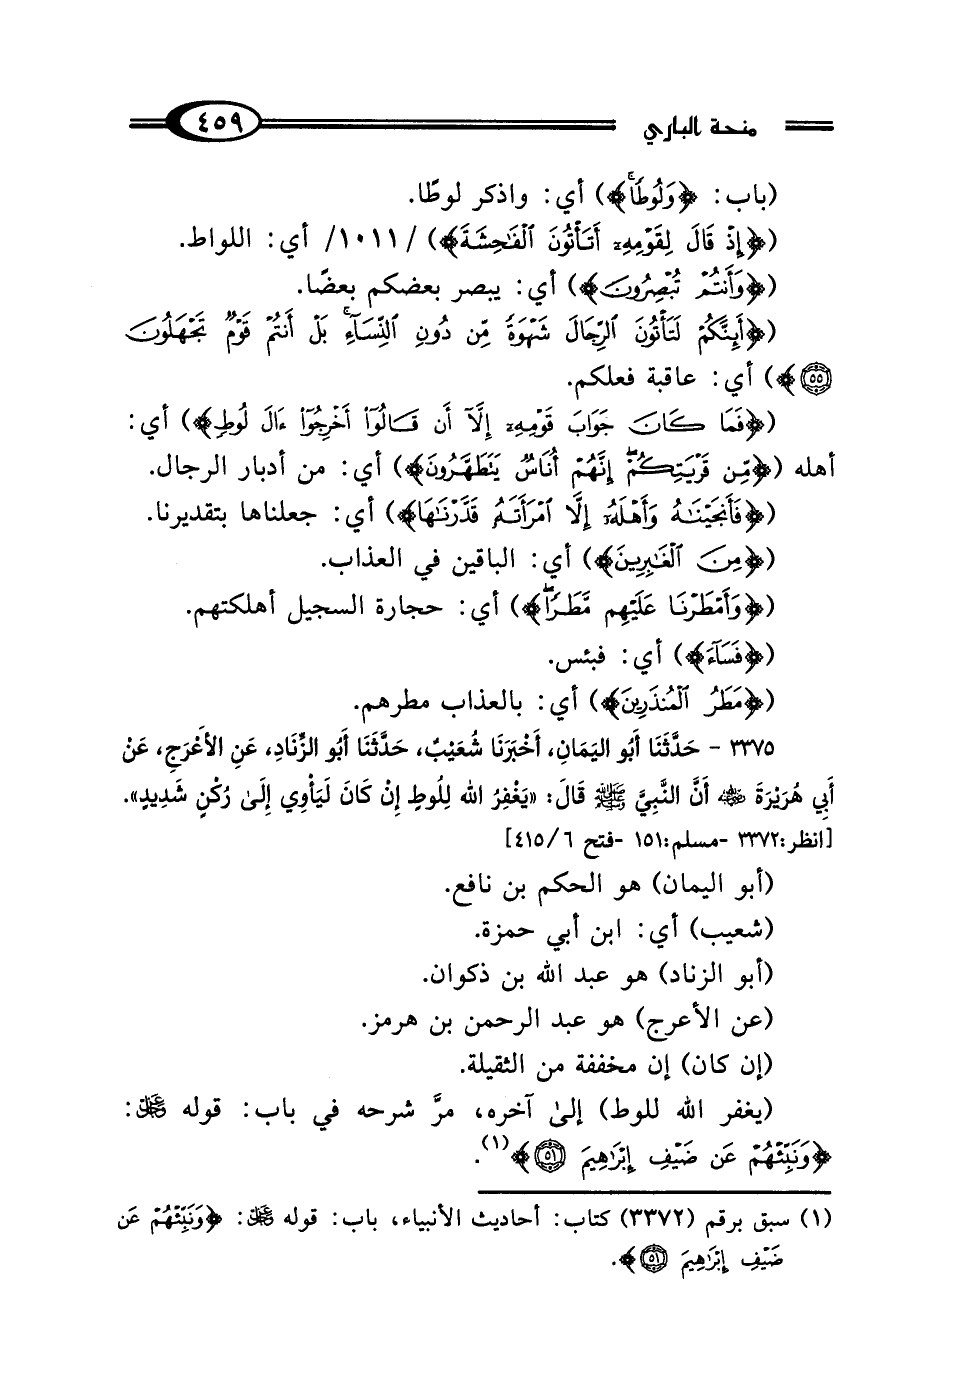 منحة الباري ٤٥٩
(باب: ﴿وَلُوطًا﴾) أي: واذكر لوطًا.
(﴿إِذْ قَالَ لِقَوْمِهِۦٓ أَتَأْتُونَ ٱلْفَٰحِشَةَ﴾) /١٠١١/ أي: اللواط.
(﴿وَأَنتُمْ تُبْصِرُونَ﴾) أي: يبصر بعضكم بعضًا.
(﴿أَئِنَّكُمْ لَتَأْتُونَ ٱلرِّجَالَ شَهْوَةً مِّن دُونِ ٱلنِّسَآءِ ۚ بَلْ أَنتُمْ قَوْمٌ تَجْهَلُونَ
٥٥﴾) أي: عاقبة فعلكم.
(﴿فَمَا كَانَ جَوَابَ قَوْمِهِۦٓ إِلَّآ أَن قَالُوٓا۟ أَخْرِجُوٓا۟ ءَالَ لُوطٍ﴾) أي:
أهله (﴿مِّن قَرْيَتِكُمْ ۖ إِنَّهُمْ أُنَاسٌ يَتَطَهَّرُونَ﴾) أي: من أدبار الرجال.
(﴿فَأَنجَيْنَٰهُ وَأَهْلَهُۥٓ إِلَّا ٱمْرَأَتَهُۥ قَدَّرْنَٰهَا﴾) أي: جعلناها بتقديرنا.
(﴿مِنَ ٱلْغَٰبِرِينَ﴾) أي: الباقين في العذاب.
(﴿وَأَمْطَرْنَا عَلَيْهِم مَّطَرًا ۖ﴾) أي: حجارة السجيل أهلكتهم.
(﴿فَسَآءَ﴾) أي: فبئس.
(﴿مَطَرُ ٱلْمُنذَرِينَ﴾) أي: بالعذاب مطرهم.
٣٣٧٥ - حَدَّثَنَا أَبُو اليَمَانِ، أَخْبَرَنَا شُعَيْبٌ، حَدَّثَنَا أَبُو الزِّنَادِ، عَنِ الأَعْرَجِ، عَنْ
أَبِي هُرَيْرَةَ ﵁ أَنَّ النَّبِيَّ ﷺ قَالَ: «يَغْفِرُ الله لِلُوطٍ إِنْ كَانَ لَيَأْوِي إِلَىٰ رُكْنٍ شَدِيدٍ».
[انظر:٣٣٧٢ -مسلم:١٥١ -فتح ٤١٥/٦]
(أبو اليمان) هو الحكم بن نافع.
(شعيب) أي: ابن أبي حمزة.
(أبو الزناد) هو عبد الله بن ذكوان.
(عن الأعرج) هو عبد الرحمن بن هرمز.
(إن كان) إن مخففة من الثقيلة.
(يغفر الله للوط) إلىٰ آخره، مرَّ شرحه في باب: قوله ﷿:
﴿وَنَبِّئْهُمْ عَن ضَيْفِ إِبْرَٰهِيمَ ٥١﴾(١).
(١) سبق برقم (٣٣٧٢) كتاب: أحاديث الأنبياء، باب: قوله ﷿: ﴿وَنَبِّئْهُمْ عَن
ضَيْفِ إِبْرَٰهِيمَ ٥١﴾.